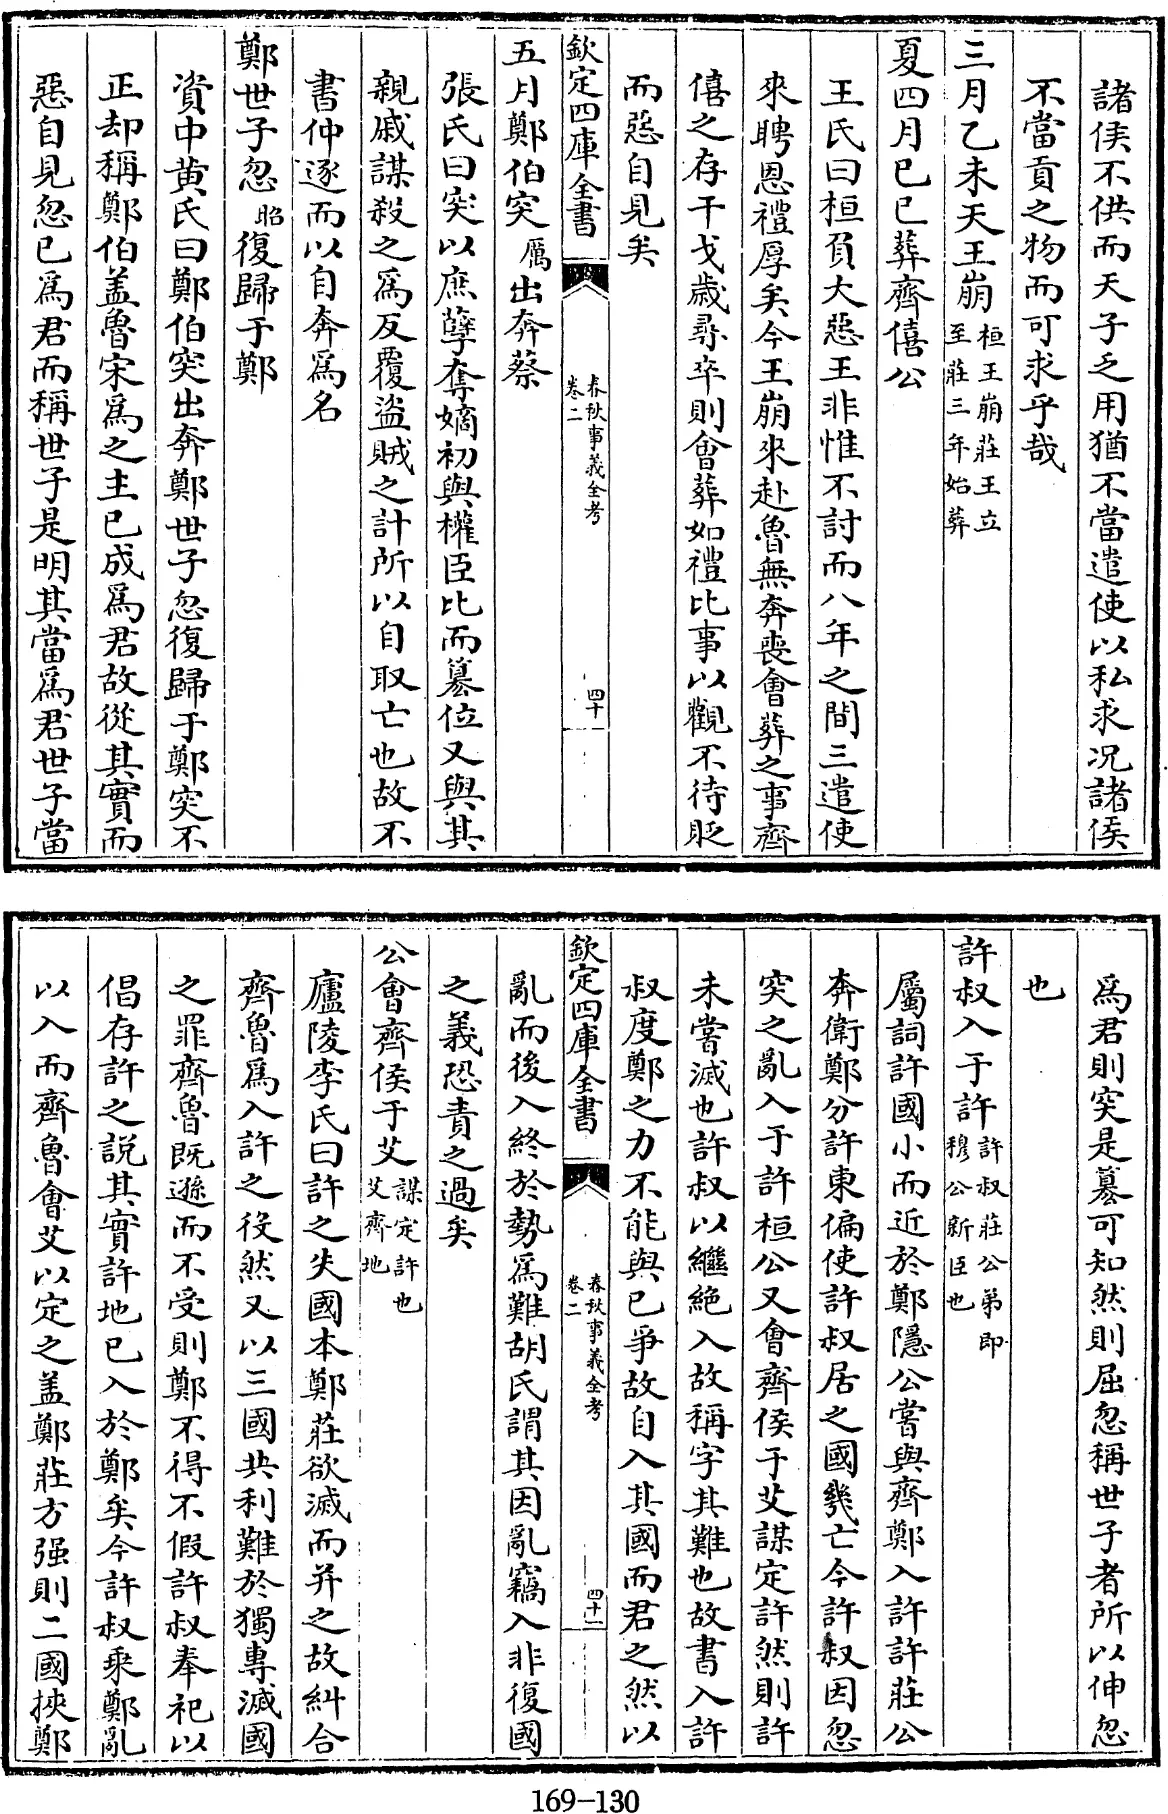 諸侯不供而天子乏用猶不當遣使以私求况諸侯
不當貢之物而可求乎哉
三月乙未天王崩桓王崩莊王立至莊三年始葬
夏四月已巳葬齊僖公
王氏曰桓負大惡王非惟不討而八年之間三遣使
來聘恩禮厚矣今王崩來赴魯無奔喪會葬之事齊
僖之存干戈歲尋卒則會葬如禮比事以觀不待貶
而惡自見矣
欽定四庫全書
春秋事義全考
卷二
四十
五月鄭伯突厲出奔蔡
張氏曰突以庶孽奪嫡初與權臣比而簒位又與其
親戚謀殺之為反覆盜賊之計所以自取亡也故不
書仲逐而以自奔為名
鄭世子忽昭復歸于鄭
資中黄氏曰鄭伯突出奔鄭世子忽復歸于鄭突不
正却稱鄭伯盖魯宋為之主已成為君故從其實而
惡自見忽已為君而稱世子是明其當為君世子當
為君則突是簒可知然則屈忽稱世子者所以伸忽
也
許叔入于許許叔莊公弟即穆公新臣也
屬詞許國小而近於鄭隱公嘗與齊鄭入許許莊公
奔衛鄭分許東偏使許叔居之國幾亡今許叔因忽
突之亂入于許桓公又會齊侯于艾謀定許然則許
未嘗滅也許叔以繼絶入故稱字其難也故書入許
叔度鄭之力不能與已爭故自入其國而君之然以
欽定四庫全書
春秋事義全考
卷二
四十一
亂而後入終於勢為難胡氏謂其因亂竊入非復國
之義恐責之過矣
公會齊侯于艾謀定許也艾齊地
廬陵李氏曰許之失國本鄭莊欲滅而并之故糾合
齊魯為入許之役然又以三國共利難於獨專滅國
之罪齊魯既遜而不受則鄭不得不假許叔奉祀以
倡存許之説其實許地已入於鄭矣今許叔乘鄭亂
以入而齊魯會艾以定之盖鄭莊方强則二國挾鄭
169-130